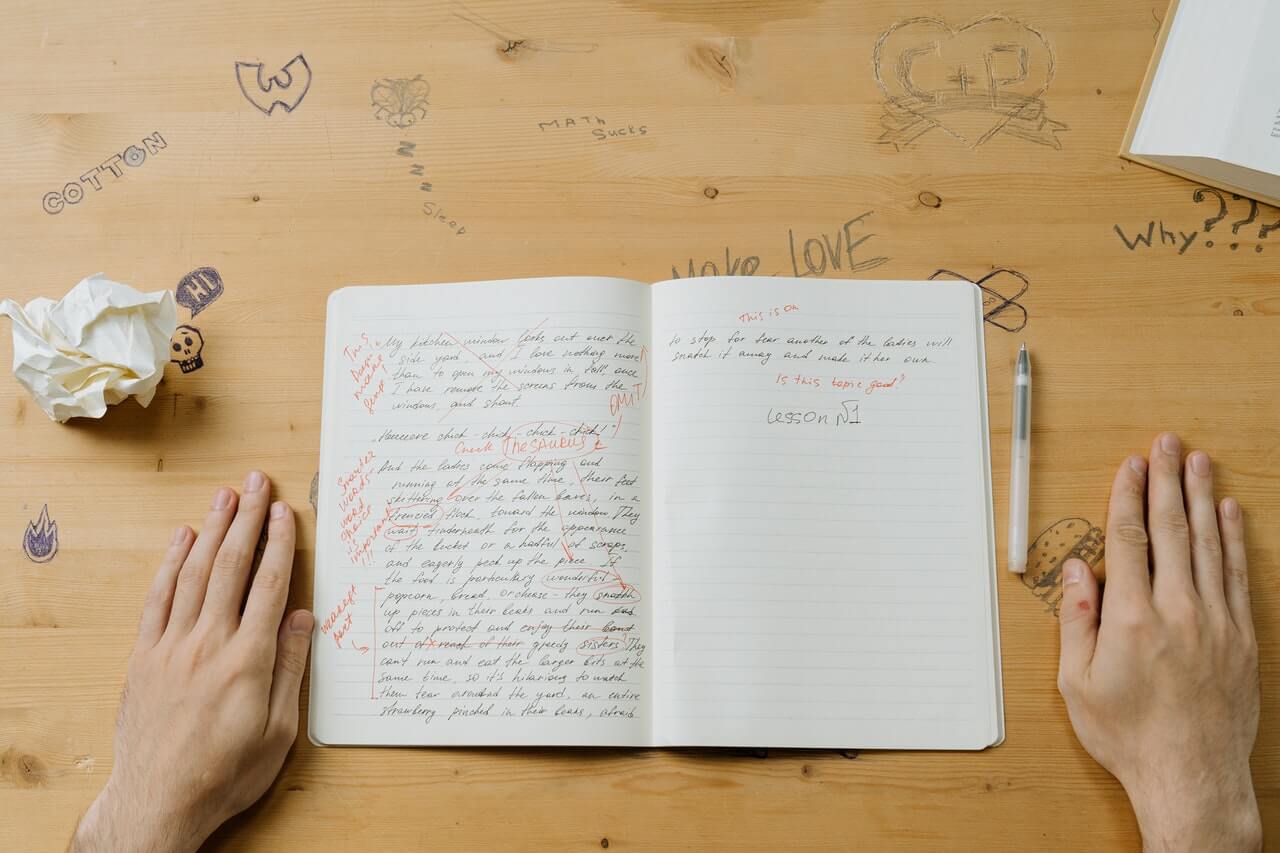 W
C+P
MATH
SUCKS
COTTON
Sleep
Why???
MAKE LOVE
HI
This is OK
My kitchen window looks out over the
side yard, and I love nothing more
than to open my windows in fall, once
I have remove the screens from the
windows, and shout.
chick-chick-chick-chick!"
OMIT
Check THESAURUS
And the ladies come flapping and
running at the same time, their feet
over the fallen leaves, in a
frenzied flock, toward the window. They
wait underneath for the appearance
of the bucket or a hadful of scraps,
and eagerly peck up the piece. If
the food is particulary wonderful –
popcorn, bread, or cheese – they snatch
up pieces in their beaks and run and
off to protect and enjoy their
out of reach of their greedy sisters? They
can't run and eat the larger bits at the
same time, so it's hilarious to watch
them tear around the yard, an entire
strawberry pinched in their beaks, afraid
smarter
words-
word
choice
is
important
!!
weakest
part
to stop for fear another of the ladies will
snatch it away and make it her own.
Is this topic good?
Lesson №1